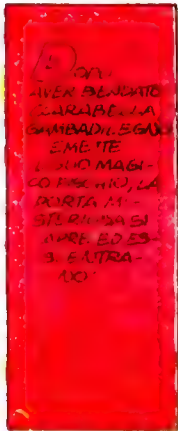 DOPO
AVER BENDATO
CLARABELLA,
GAMBADILEGNO
EMETTE
IL SUO MAGI-
CO FISCHIO, LA
PORTA MI-
STERIOSA SI
APRE ED ES-
SI ENTRA-
NO!